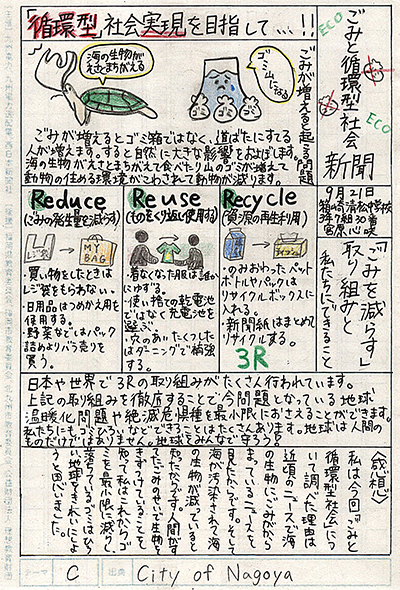 「循環型」社会実現を目指して…!!
ECO
ごみと循環型社会
新聞
ECO
9月21日
箱崎清松中学校
3年7組30番
宮原心咲
海の生物が
えさとまちがえる
ゴミ山になる
ごみが増えると起こる問題
ごみが増えるとゴミ箱ではなく、道ばたにすてる
人が増えます。すると自然に大きな影響をおよぼします。
海の生物がえさとまちがえて食べたり山のゴミが増えて
動物の住める環境がこわされて動物が減ります。
「ごみを減らす」
取り組みと
私たちにできること
Reduce
(ごみの発生量を減らす)
レジ袋
MY
BAG
・買い物をしたときは
レジ袋をもらわない。
・日用品はつめかえ用を
使用する。
・野菜などはパック
詰めよりバラ売りを
買う。
Reuse
(ものをくり返し使用する)
・着なくなった服は誰か
にゆずる。
・使い捨ての乾電池
ではなく充電池を
選ぶ。
・穴のあいたくつした
はダーニングで補強
する。
Recycle
(資源の再生利用)
・のみおわったペット
ボトルやパックは
リサイクルボックスに
入れる。
・新聞紙はまとめて
リサイクルする。
3R
日本や世界で3Rの取り組みがたくさん行われています。
上記の取り組みを徹底することで今問題となっている地球
温暖化問題や絶滅危惧種を最小限におさえることができます。
私たちにもゴミひろいなどできることはたくさんあります。地球は人間の
ものだけではありません。地球をみんなで守ろう!
〈感想〉
私は今回「ごみと
循環型社会」につ
いて調べた理由は
近頃のニュースで海
の生物にごみがから
まっているニュースを
見たからです。そして
海が汚染されて海
の生物が減っていると
知ったからです。人間がす
てたごみのせいで生物を
きずつけていることを
知って私はこれからゴ
ミを最小限に減らし、
落ちているゴミはひろ
い地球をきれいにしよ
うと思いました。
テーマ
C
出典
City of Nagoya